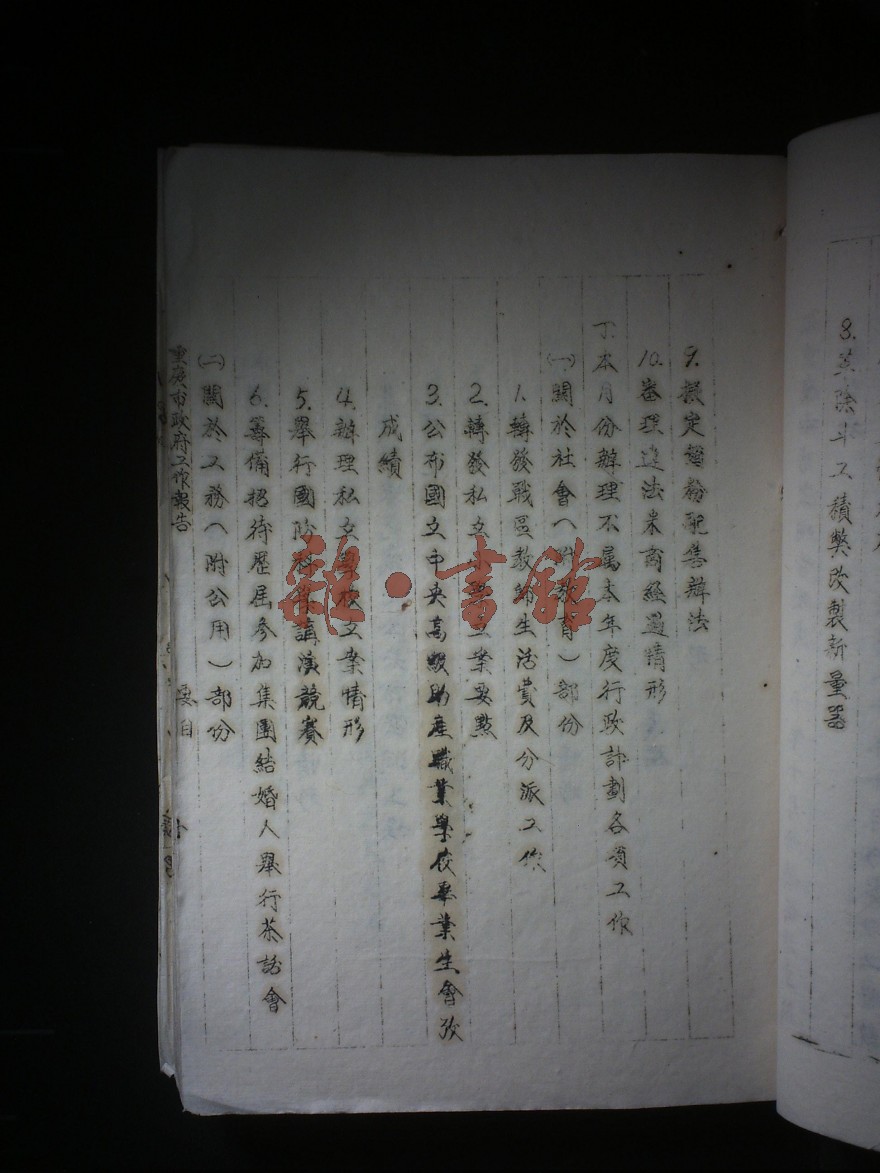 8. 革除斗工積弊改製新量器
9. 擬定麵粉配售辦法
10. 審理違法米商經過情形
丁. 本月份辦理不屬本年度行政計劃各項工作
(一) 關於社會(附教育)部份
1. 轉發戰區教師生活費及分派工作
2. 轉發私立學校立案要點
3. 公布國立中央高級助產職業學校畢業生會考
成績
4. 辦理私立學校立案情形
5. 舉行國防科學講演競賽
6. 籌備招待歷屆參加集團結婚人舉行茶話會
(二) 關於工務(附公用)部份
重慶市政府工作報告 要目
龍·書館